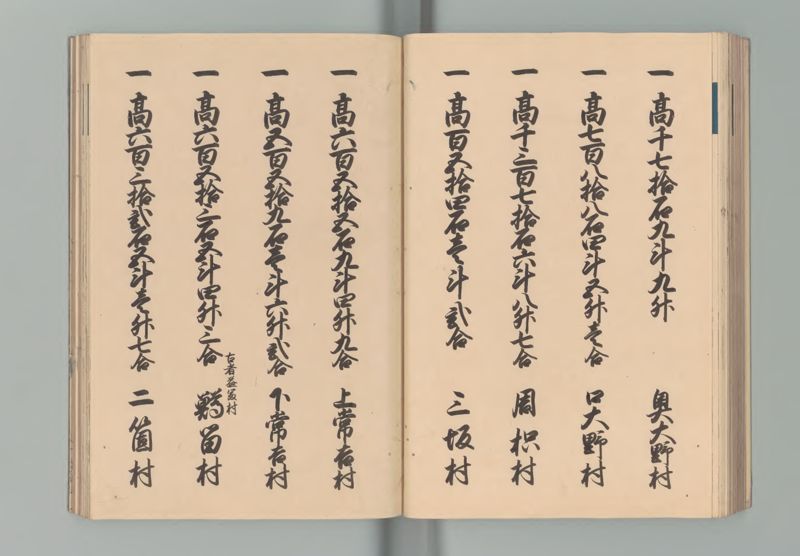 一 高千七拾石九斗九升 奥大野村
一 高七百八拾八石四斗五升壱合 口大野村
一 高千三百七拾石六斗八升七合 周枳村
一 高百五拾四石壱斗弐合 三坂村
一 高六百五拾五石九斗四升九合 上常吉村
一 高五百五拾九石壱斗六升弐合 下常吉村
一 高六百五拾三石五斗四升三合 鶏留村
古者益富村
一 高六百三拾弐石五斗壱升七合 二箇村